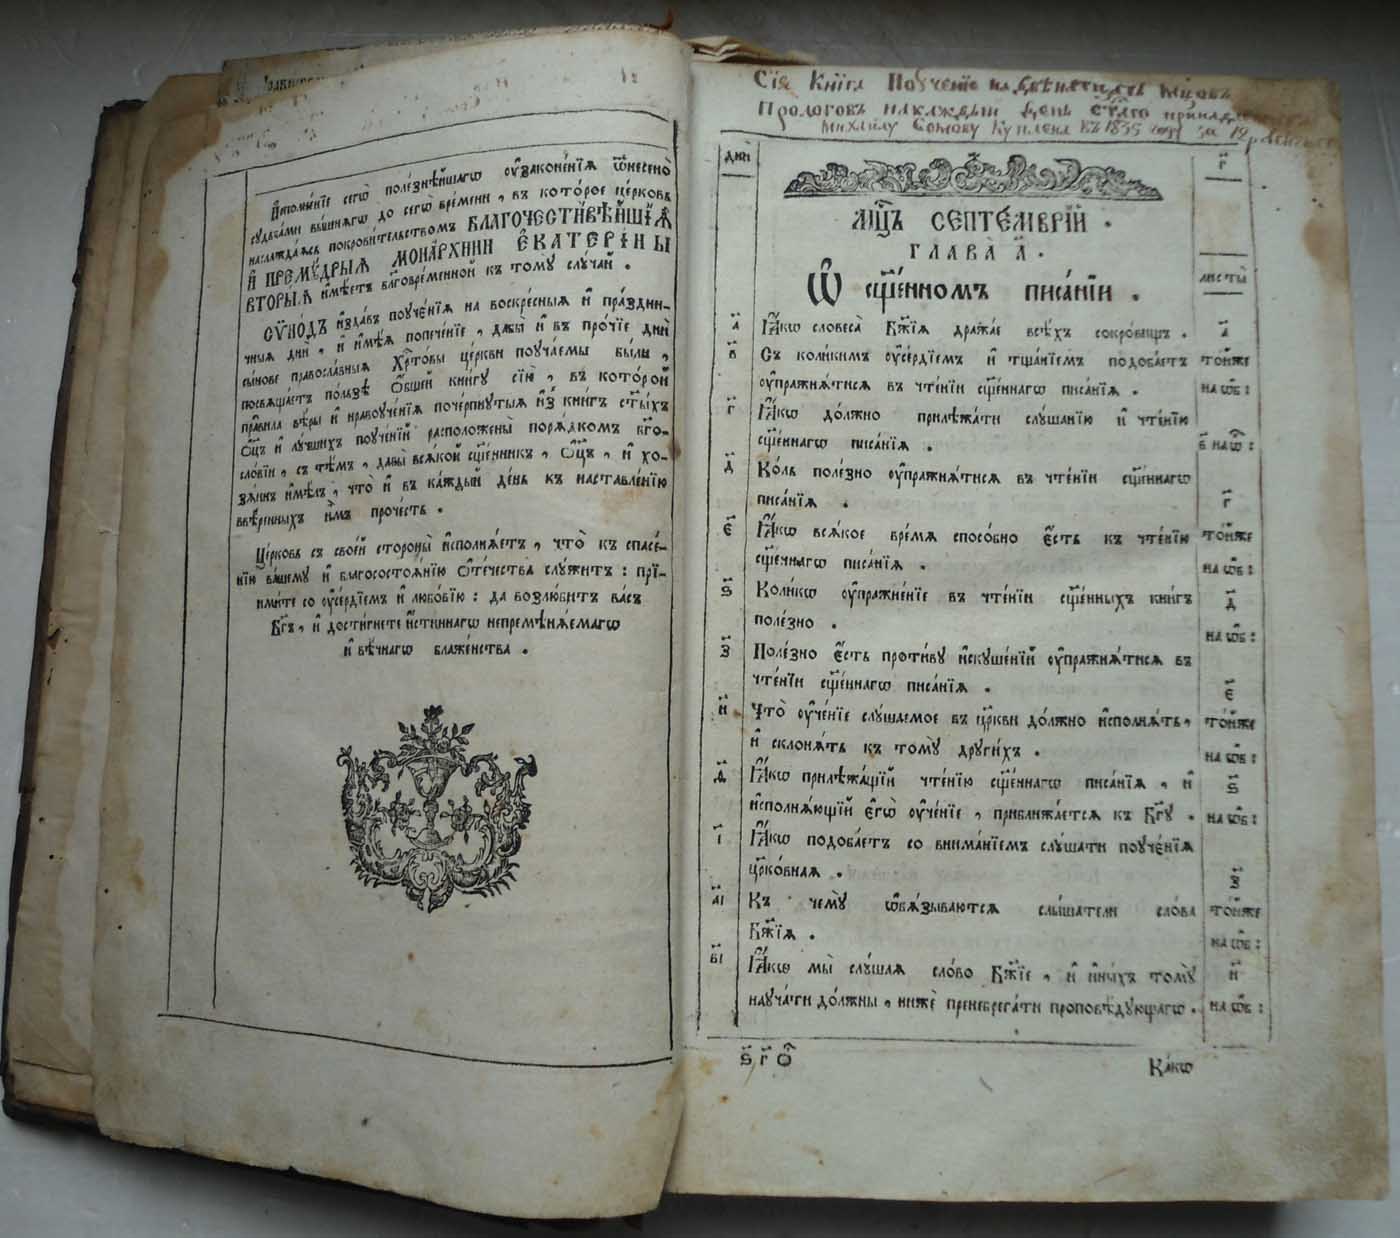 И҆сполне́нїе сегѡ̀ поле́знѣйшагѡ ᲂу҆законе́нїѧ ѿнесено̀
судьба́ми вы́шнѧгѡ до сегѡ̀ вре́мени , въ кото́рое це́рковь
наслажда́ѧсь покрови́тельствомъ БЛАГОЧЕСТИ́ВѢЙШІѦ
И҆ ПРЕМꙊ́ДРЫѦ МОНА́РХИНИ Е҆КАТЕРІ́НЫ
ВТОРЫ́Ѧ и҆мѣ́етъ бл҃говре́менной къ тому̀ слꙋ́чай .
СѴНО́ДЪ и҆зда́въ поꙋче́нїѧ на воскре́сныѧ и҆ пра́здни-
чныѧ дни̑ , и҆ и҆мѣ́ѧ попече́нїе , дабы̀ и҆ въ про́чїе дни̑
сы́нове правосла́вныѧ Хрⷭ҇то́вы це́ркви поꙋча́емы бы́ли ,
посвѧща́етъ по́льзѣ ѻ҆́бщей кни́гꙋ сїю̀ , въ кото́рой
пра́вила вѣ́ры и҆ нравоꙋче́нїѧ поче́рпнꙋтыѧ и҆з̾ кни́гъ ст҃ы́хъ
ѻ҆ц҃ъ и҆ лꙋ́чшихъ поꙋче́нїй расположены̀ порѧ́дкомъ бг҃о-
сло́вїи , съ тѣ́мъ , дабы̀ всѧ́кой сщ҃е́нникъ , ѻ҆ц҃ъ , и҆ хо-
зѧ́инъ и҆мѣ́лъ , что̀ и҆ въ ка́ждый де́нь къ наставле́нїю
ввѣ́ренныхъ и҆̀мъ проче́сть .
Це́рковь съ свое́й стороны̀ и҆сполнѧ́етъ , что̀ къ спасе́-
нїю ва́шемꙋ и҆ благосостоѧ́нїю ѻ҆те́чества слꙋ́житъ : прї-
ими́те со ᲂу҆се́рдїемъ и҆ любо́вїю : да возлю́битъ ва́съ
Бг҃ъ , и҆ дости́гнете и҆́стиннагѡ непремѣнѧ́емагѡ
и҆ вѣ́чнагѡ блаже́нства .
Сїѧ Книга Поученїе на двѣнатцать мⷭ҇цовъ
Прологовъ на каждыи день
Михайлу Сомову Куплена въ 1835 году за 12 рублей
дни̑
г҃
МЦ҃Ъ СЕПТЕ́МВРІЙ .
ГЛАВА̀ А҃ .
Ѽ сщ҃е́нномъ писа́нїи .
листы̀
а҃ Ꙗ҆́кѡ словеса̀ Бж҃їѧ дража́е всѣ́хъ сокро́вищъ . а҃
в҃ Съ коли́кимъ ᲂу҆се́рдїемъ и҆ тща́нїемъ подоба́етъ то́йже
ᲂу҆пражнѧ́тисѧ въ чте́нїи сщ҃е́ннагѡ писа́нїѧ . на ѡ҆б :
г҃ Ꙗ҆́кѡ до́лжно прилѣжа́ти слы́шанїю и҆ чте́нїю
сщ҃е́ннагѡ писа́нїѧ . в҃ на ѡ҆ :
д҃ Ко́ль поле́зно ᲂу҆пражнѧ́тисѧ въ чте́нїи сщ҃е́ннагѡ
писа́нїѧ . г҃
е҃ Ꙗ҆́кѡ всѧ́кое вре́мѧ спосо́бно є҆́сть къ чте́нїю то́йже
сщ҃е́ннагѡ писа́нїѧ . на ѡ҆б :
ѕ҃ Коли́кѡ ᲂу҆пражне́нїе въ чте́нїи сщ҃е́нныхъ кни́гъ д҃
поле́зно . на ѡ҆б :
з҃ Поле́зно є҆́сть проти́вꙋ и҆скꙋше́нїй ᲂу҆пражнѧ́тисѧ въ
чте́нїи сщ҃е́ннагѡ писа́нїѧ . е҃
и҃ Что̀ ᲂу҆че́нїе слы́шаемое въ цр҃кви до́лжно и҆сполнѧ́ть , то́йже
и҆ склонѧ́ть къ томꙋ̀ дрꙋги́хъ . на ѡ҆б :
ѳ҃ Ꙗ҆́кѡ прилѣжа́щїй чте́нїю сщ҃е́ннагѡ писа́нїѧ , и҆ ѕ҃
и҆сполнѧ́ющїй є҆гѡ̀ ᲂу҆че́нїе , приближа́етсѧ къ Бг҃ꙋ . на ѡ҆б :
і҃ Ꙗ҆́кѡ подоба́етъ со внима́нїемъ слꙋ́шати поꙋче́нїѧ
цр҃ко́внаѧ . з҃
а҃і Къ чемꙋ̀ ѡ҆бѧ́зываютсѧ слы́шатели сло́ва то́йже
Бж҃їѧ . на ѡ҆б :
в҃і Ꙗ҆́кѡ мы̀ слы́шаѧ сло́во Бж҃їе , и҆ и҆ны́хъ томꙋ̀ и҃
наꙋча́ти до́лжны , нижѐ пренебрега́ти проповѣ́дꙋющагѡ . на ѡ҆б :
ѕ҃ г҃ ѻ҆
Ка́кѡ